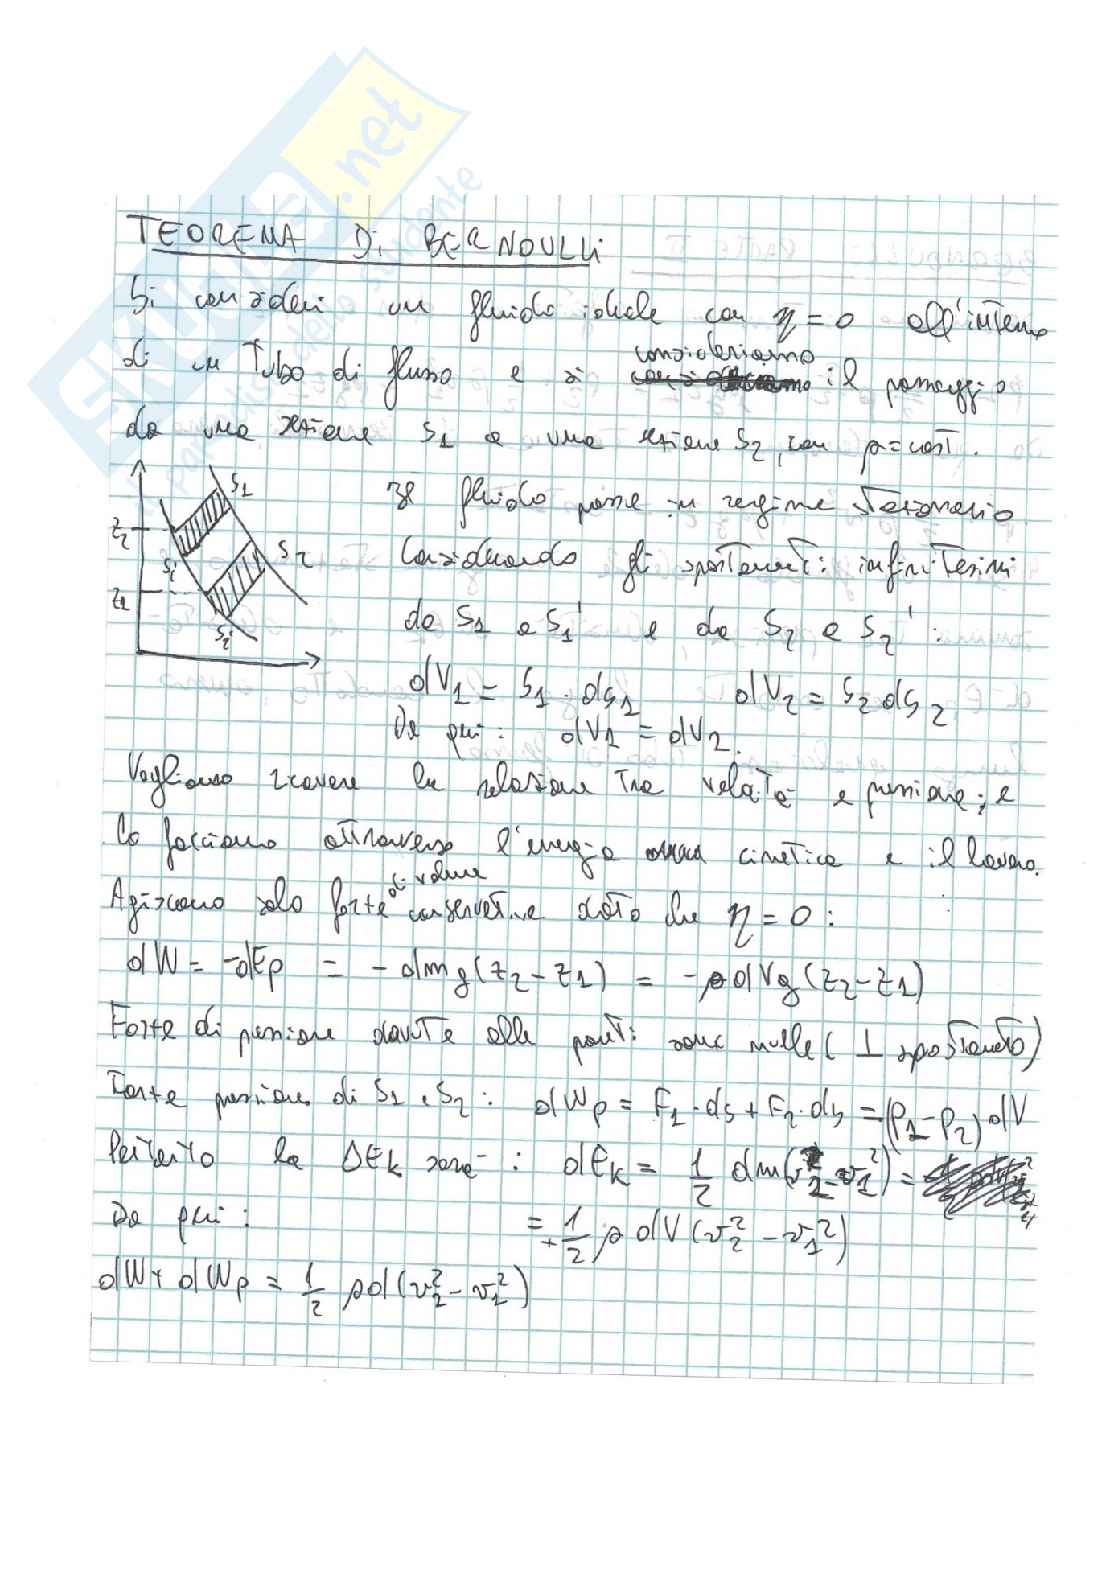 SKUOLA.net
TEOREMA Di BERNOULLi
Si consideri un fluido ideale con η = 0 all'interno
di un Tubo di flusso e si consideriamo il passaggio
da una sezione S1 a una sezione S2, con ρ = cost.
S1
Z2
S1'
S2
Z1
S2'
Il fluido passa in regime stazionario
Considerando gli spostamenti infinitesimi
da S1 a S1' e da S2 a S2' :
dV1 = S1 · ds1 dV2 = S2 ds2
Da qui : dV1 = dV2.
Vogliamo ricavare la relazione tra velocità e pressione, e
lo facciamo attraverso l'energia cinetica e il lavoro.
Agiscono solo forze di volume conservative dato che η = 0 :
dW = -dEp = - dm g (z2 - z1) = - ρ dV g (z2 - z1)
Forze di pressione dovute alle pareti sono nulle ( ⊥ spostamento)
Forze pressione di S1 e S2 : dWp = F1 · ds + F2 · ds = (p1 - p2) dV
Pertanto la ΔEk sarà : dEk = 1/2 dm (v2² - v1²) =
Da qui : = + 1/2 ρ dV (v2² - v1²)
dW + dWp = 1/2 ρ d (v2² - v1²)